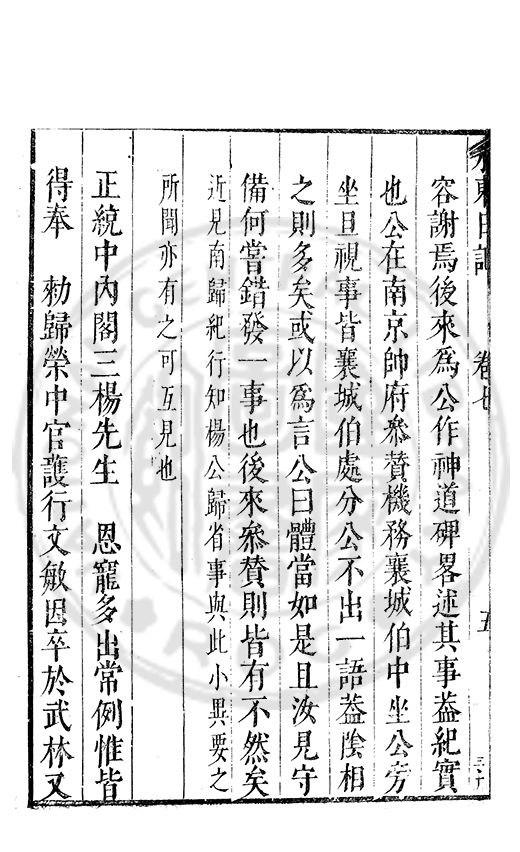 水東日記 卷七 五 三十
容謝焉後來爲公作神道碑畧述其事葢紀實
也公在南京帥府叅贊機務襄城伯中坐公旁
坐旦視事皆襄城伯處分公不出一語葢隂相
之則多矣或以爲言公曰體當如是且汝見守
備何嘗錯發一事也後來叅贊則皆有不然矣
近見南歸紀行知楊公歸省事與此小異要之
所聞亦有之可互見也
正統中內閣三楊先生 恩寵多出常例惟皆
得奉 勑歸榮中官護行文敏因卒於武林又